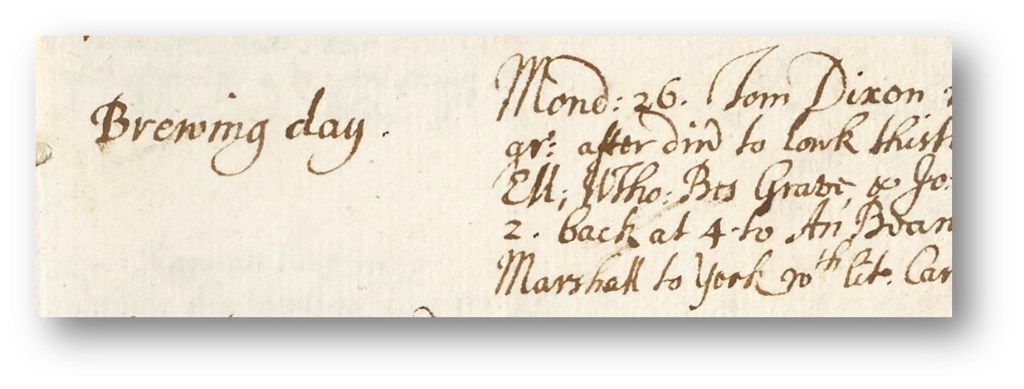 Brewing day.
Mond: 26. Tom Dixon
qr: after din to lowk thistl
Ell; Tho: Bes Grave, & Jo:
2. back at 4 to An Bean
Marshall to York wth lit: Car